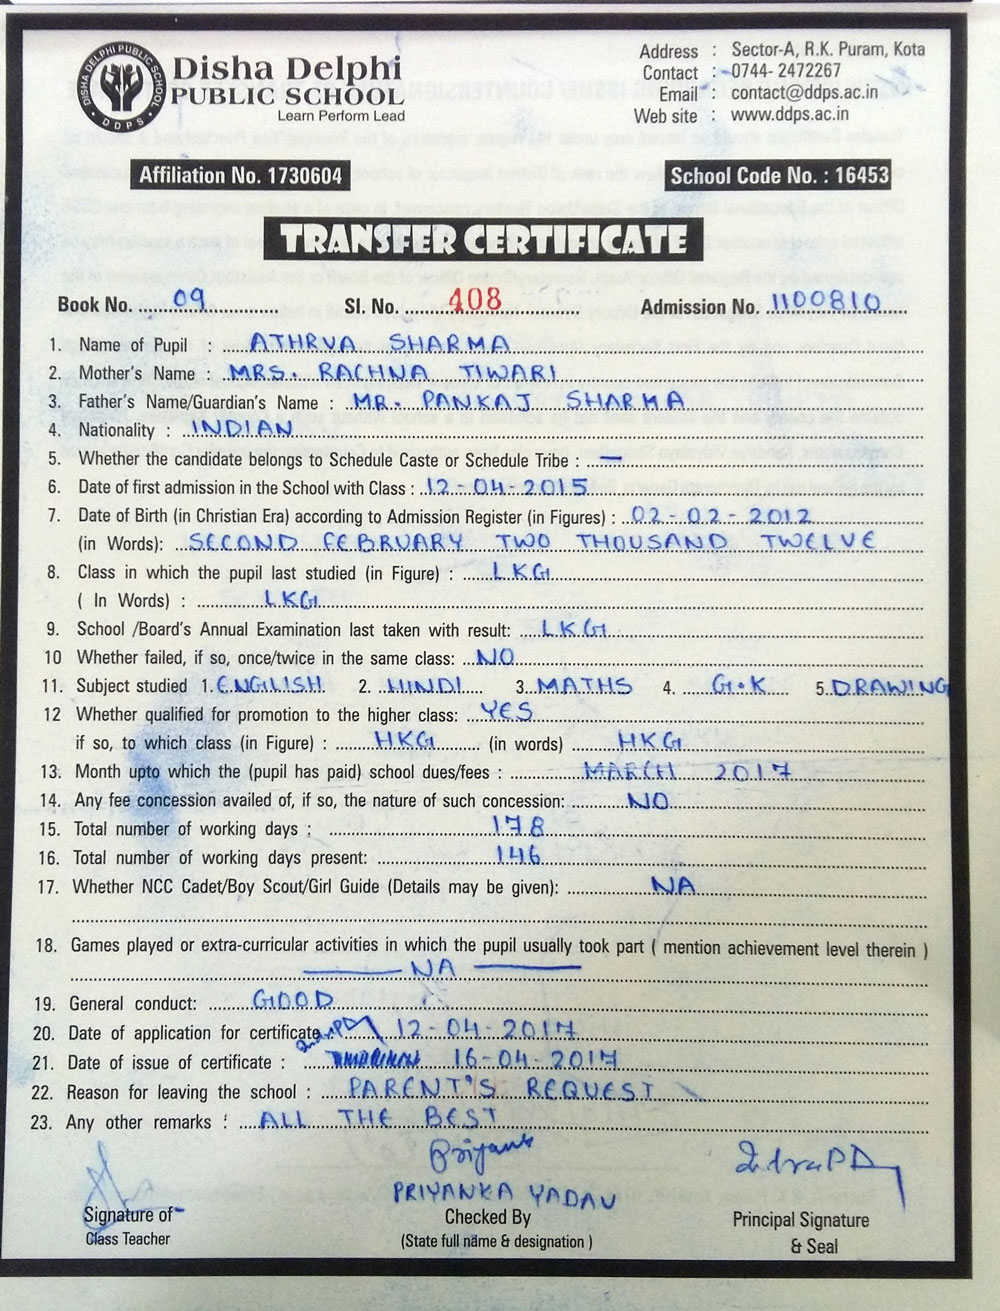 DISHA DELPHI PUBLIC SCHOOL
DDPS
Disha Delphi
PUBLIC SCHOOL
Learn Perform Lead
Address : Sector-A, R.K. Puram, Kota
Contact : 0744- 2472267
Email : contact@ddps.ac.in
Web site : www.ddps.ac.in
Affiliation No. 1730604 School Code No. : 16453
TRANSFER CERTIFICATE
Book No. 09 Sl. No. 408 Admission No. 1100810
1. Name of Pupil : ATHRVA SHARMA
2. Mother's Name : MRS. RACHNA TIWARI
3. Father's Name/Guardian's Name : MR. PANKAJ SHARMA
4. Nationality : INDIAN
5. Whether the candidate belongs to Schedule Caste or Schedule Tribe : —
6. Date of first admission in the School with Class : 12-04-2015
7. Date of Birth (in Christian Era) according to Admission Register (in Figures) : 02-02-2012
(in Words): SECOND FEBRUARY TWO THOUSAND TWELVE
8. Class in which the pupil last studied (in Figure) : LKG
( In Words) : LKG
9. School /Board's Annual Examination last taken with result: LKG
10 Whether failed, if so, once/twice in the same class: NO
11. Subject studied 1. ENGLISH 2. HINDI 3. MATHS 4. G.K 5. DRAWING
12 Whether qualified for promotion to the higher class: YES
if so, to which class (in Figure) : HKG (in words) HKG
13. Month upto which the (pupil has paid) school dues/fees : MARCH 2017
14. Any fee concession availed of, if so, the nature of such concession: NO
15. Total number of working days : 178
16. Total number of working days present: 146
17. Whether NCC Cadet/Boy Scout/Girl Guide (Details may be given): NA
18. Games played or extra-curricular activities in which the pupil usually took part ( mention achievement level therein )
— NA —
19. General conduct: GOOD
20. Date of application for certificate 12-04-2017
21. Date of issue of certificate : 16-04-2017
22. Reason for leaving the school : PARENT'S REQUEST
23. Any other remarks : ALL THE BEST
PRIYANKA YADAV
Signature of Class Teacher
Checked By
(State full name & designation )
Principal Signature
& Seal